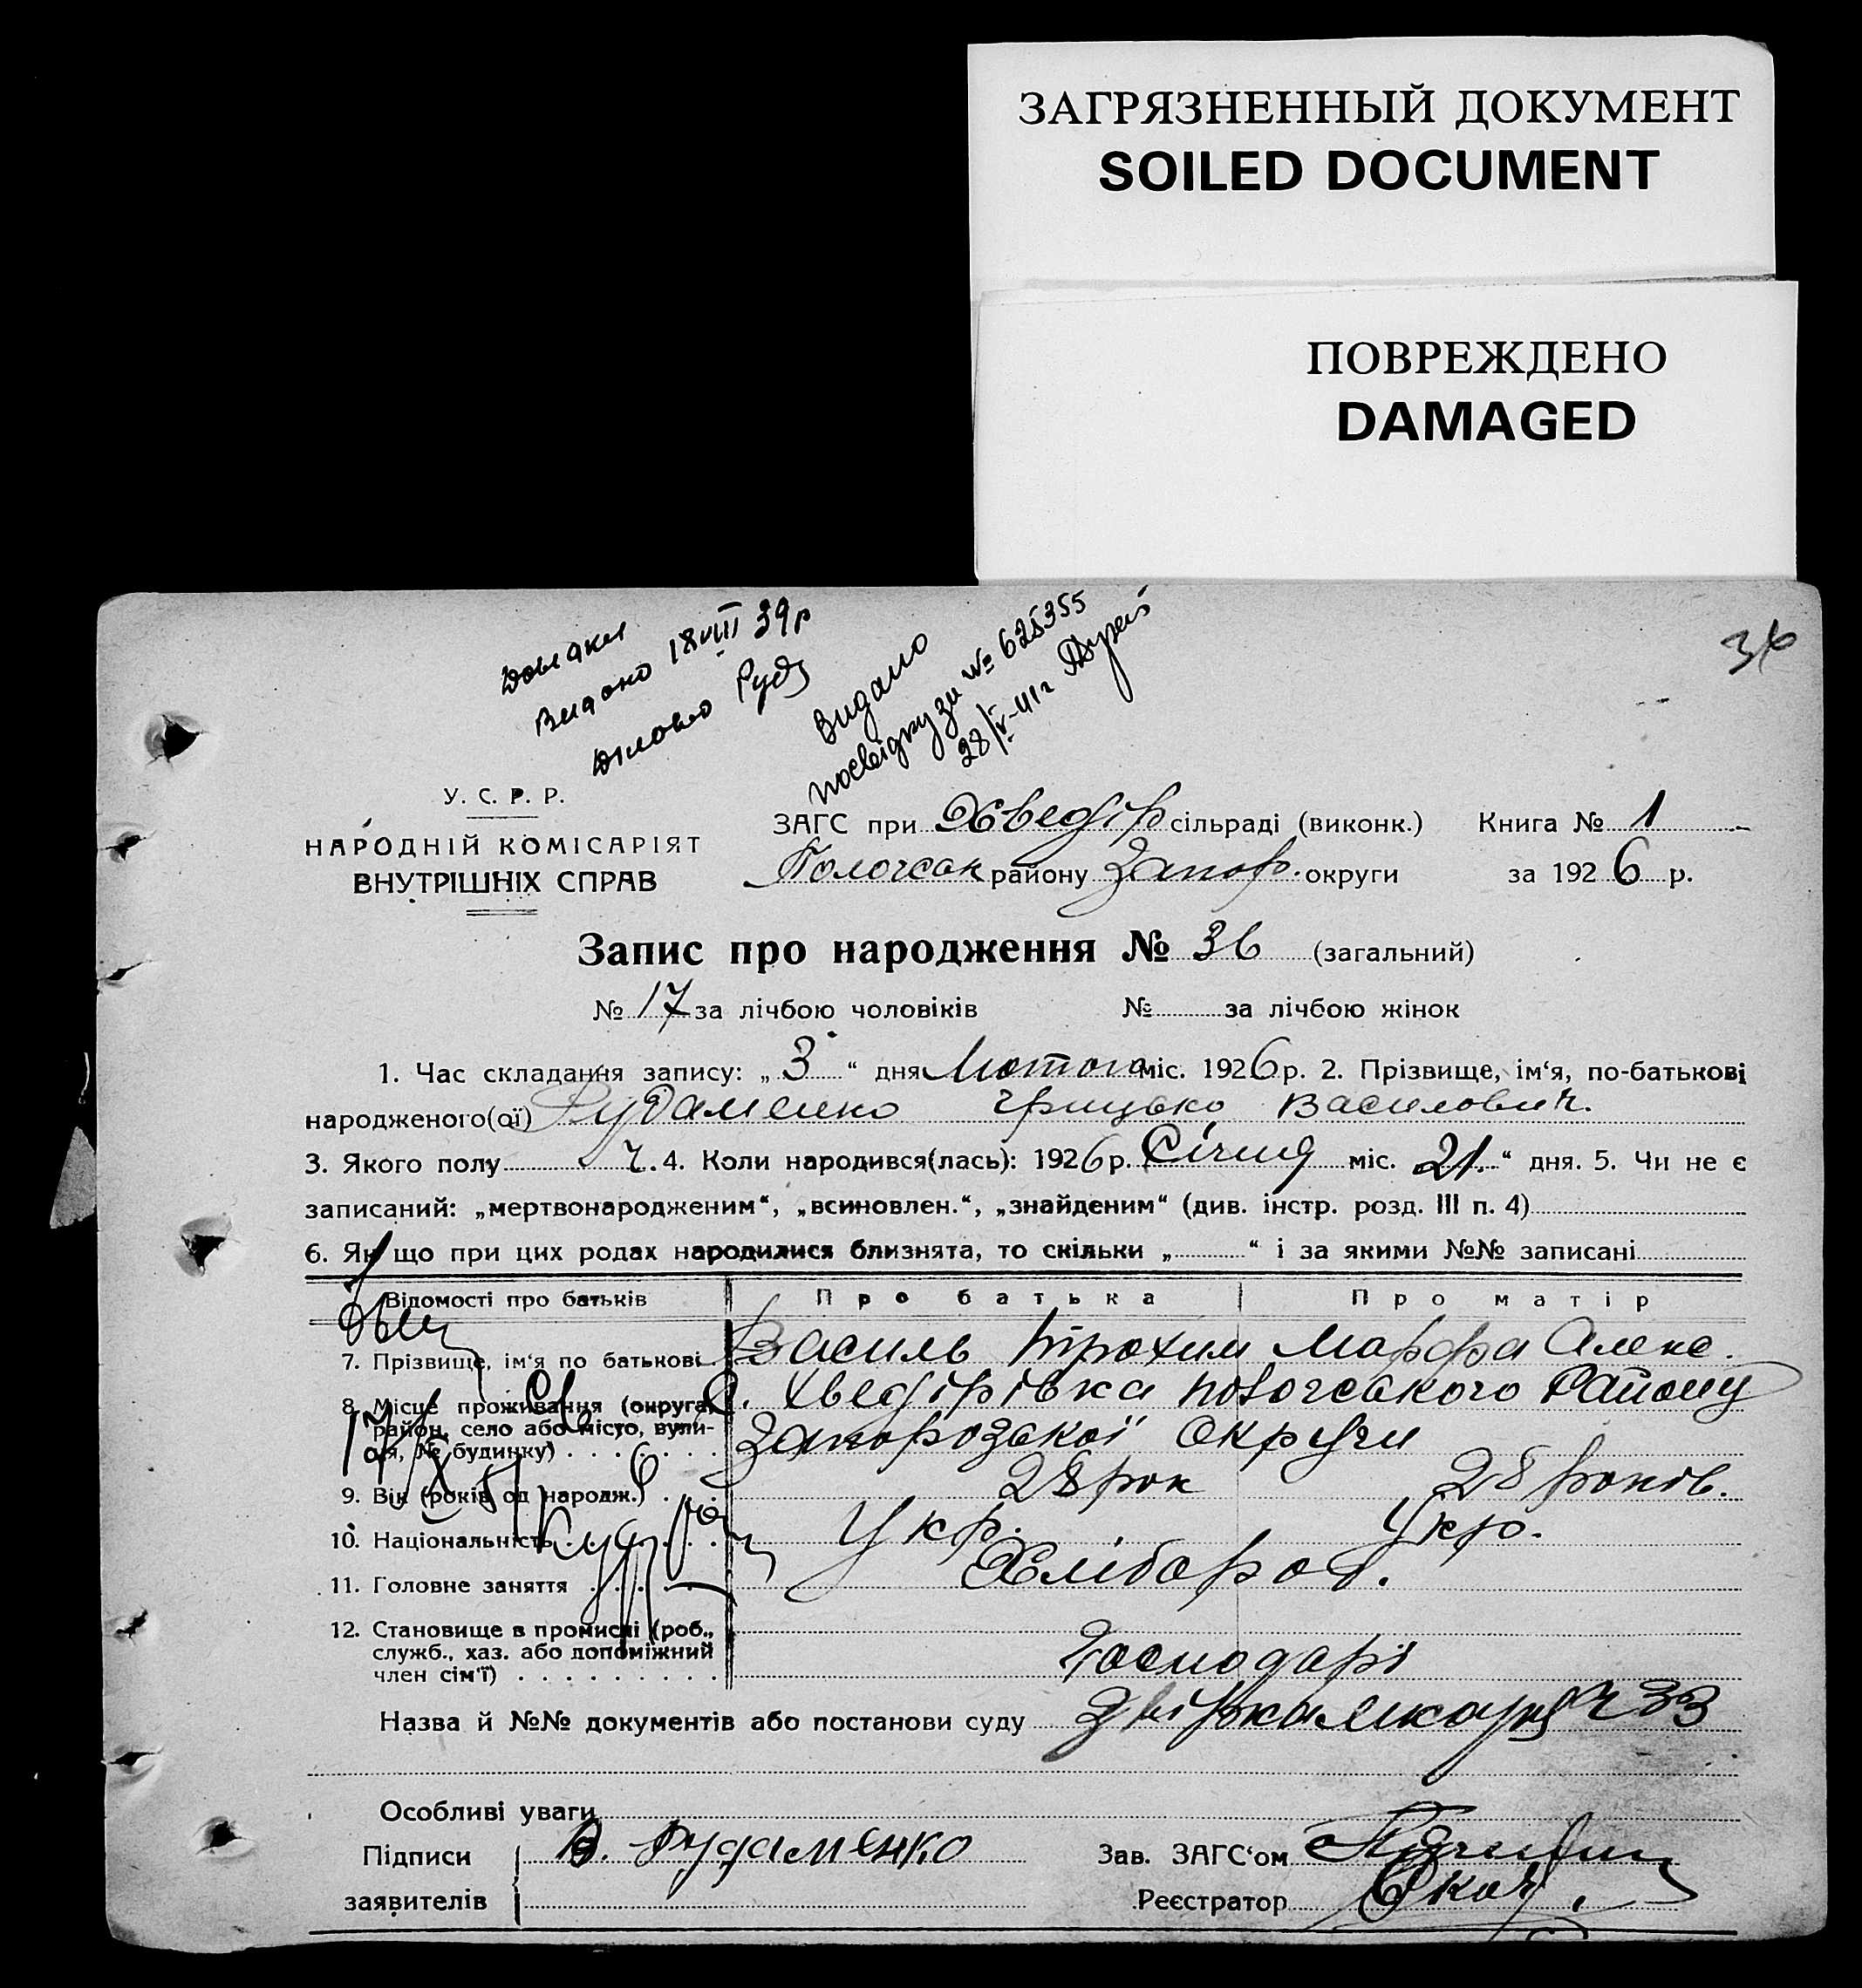 ЗАГРЯЗНЕННЫЙ ДОКУМЕНТ
SOILED DOCUMENT
ПОВРЕЖДЕНО
DAMAGED
36
Видано 18 VIII 39 р
Видано
посвідку за № 625355
28/V-41 г
У. С. Р. Р.
НАРОДНІЙ КОМІСАРІЯТ
ВНУТРІШНІХ СПРАВ
ЗАГС при Хведір сільраді (виконк.) Книга № 1
району Запор. округи за 1926 р.
Запис про народження № 36 (загальний)
№ 17 за лічбою чоловіків № за лічбою жінок
1. Час складання запису: „ 3 “ дня Лютого міс. 1926 р. 2. Прізвище, ім‘я, по-батькові
народженого(ої) Рудаменко Грицько Василович.
3. Якого полу ч. 4. Коли народився(лась): 1926 р. Січня міс. 21. “ дня. 5. Чи не є
записаний: „мертвонародженим“, „всиновлен.“, „знайденим“ (див. інстр. розд. III п. 4)
6. Як що при цих родах народилися близнята, то скільки „ “ і за якими №№ записані
Відомості про батьків Про батька Про матір
7. Прізвище, ім‘я по батькові Василь Трохим Марфа Алекс.
8. Місце проживання (округа, С. Хведірівка Района
район, село або місто, вули- Запорозької Округи
ця, № будинку)
9. Вік (років од народж.) 28 рок 28 років.
10. Національність Укр. Укр.
11. Головне заняття Хлібороб.
12. Становище в промислі (роб.,
служб., хаз. або допоміжний Господарі
член сім‘ї)
Назва й №№ документів або постанови суду 33
Особливі уваги
Підписи В. Рудаменко Зав. ЗАГС‘ом
заявителів Реєстратор